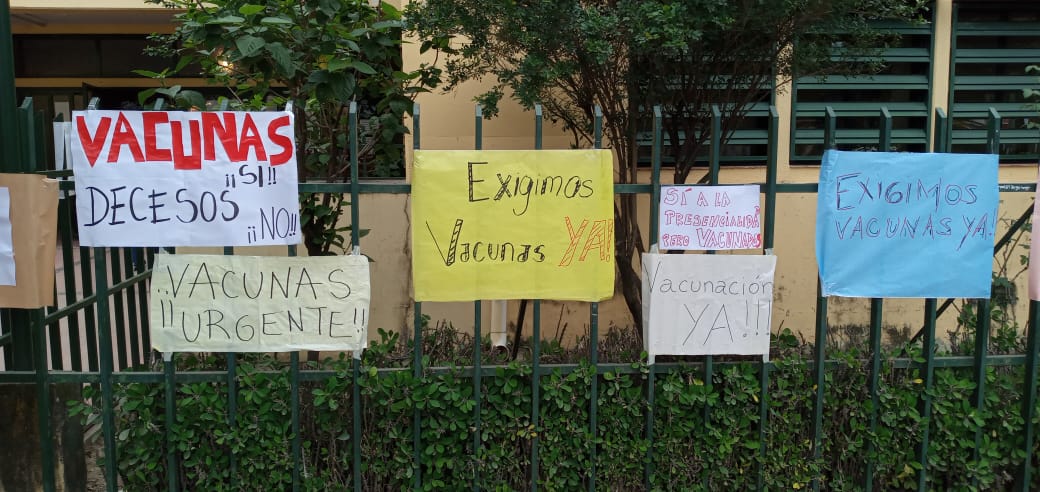 VACUNAS
¡¡SI!!
DECESOS
¡¡NO!!
¡¡VACUNAS
URGENTE!!
Exigimos
Vacunas YA!
SÍ A LA
PRESENCIALIDAD
PERO VACUNADOS
Vacunación
YA!!!
EXIGIMOS
VACUNAS YA!